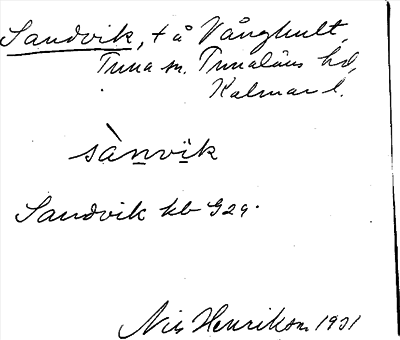 Sandvik, t å Vånghult,
Tuna sn. Tunaläns hd,
Kalmar l.
sànvik
Sandvik kb 929.
Nils Henrikson 1931